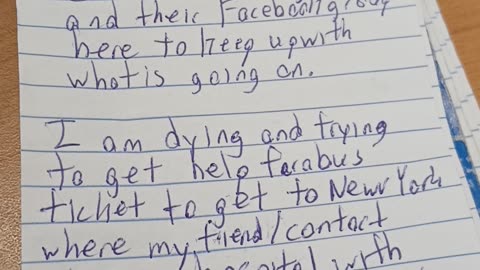 and their Facebook group
here to keep up with
what is going on.
I am dying and trying
to get help for a bus
ticket to get to New York
where my friend/contact
hospital with